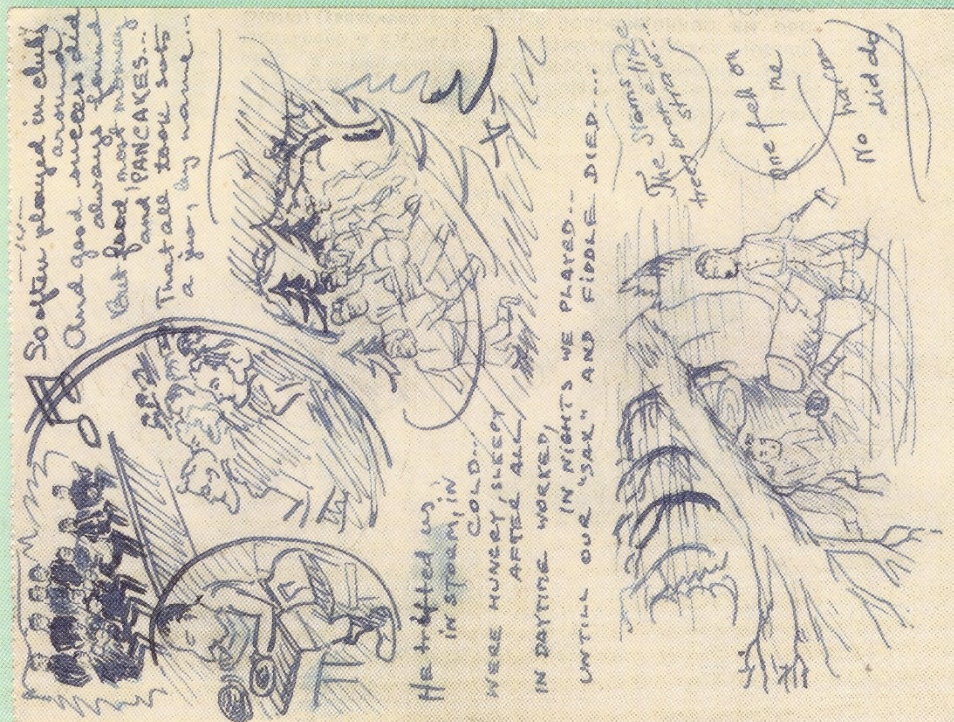 So often played in clubs
around
And good success did
always found
But food most money
and 'PANCAKES...
That all took
a by name...
He us
in STORM, in
COLD...
WERE HUNGRY, SLEEPY
AFTER ALL,
IN DAYTIME WORKED,
IN NIGHTS WE PLAYED...
UNTILL OUR "SAX" AND FIDDLE DIED....
The stoms like
trees broke
straw...
One fell on
me
harm
No did do